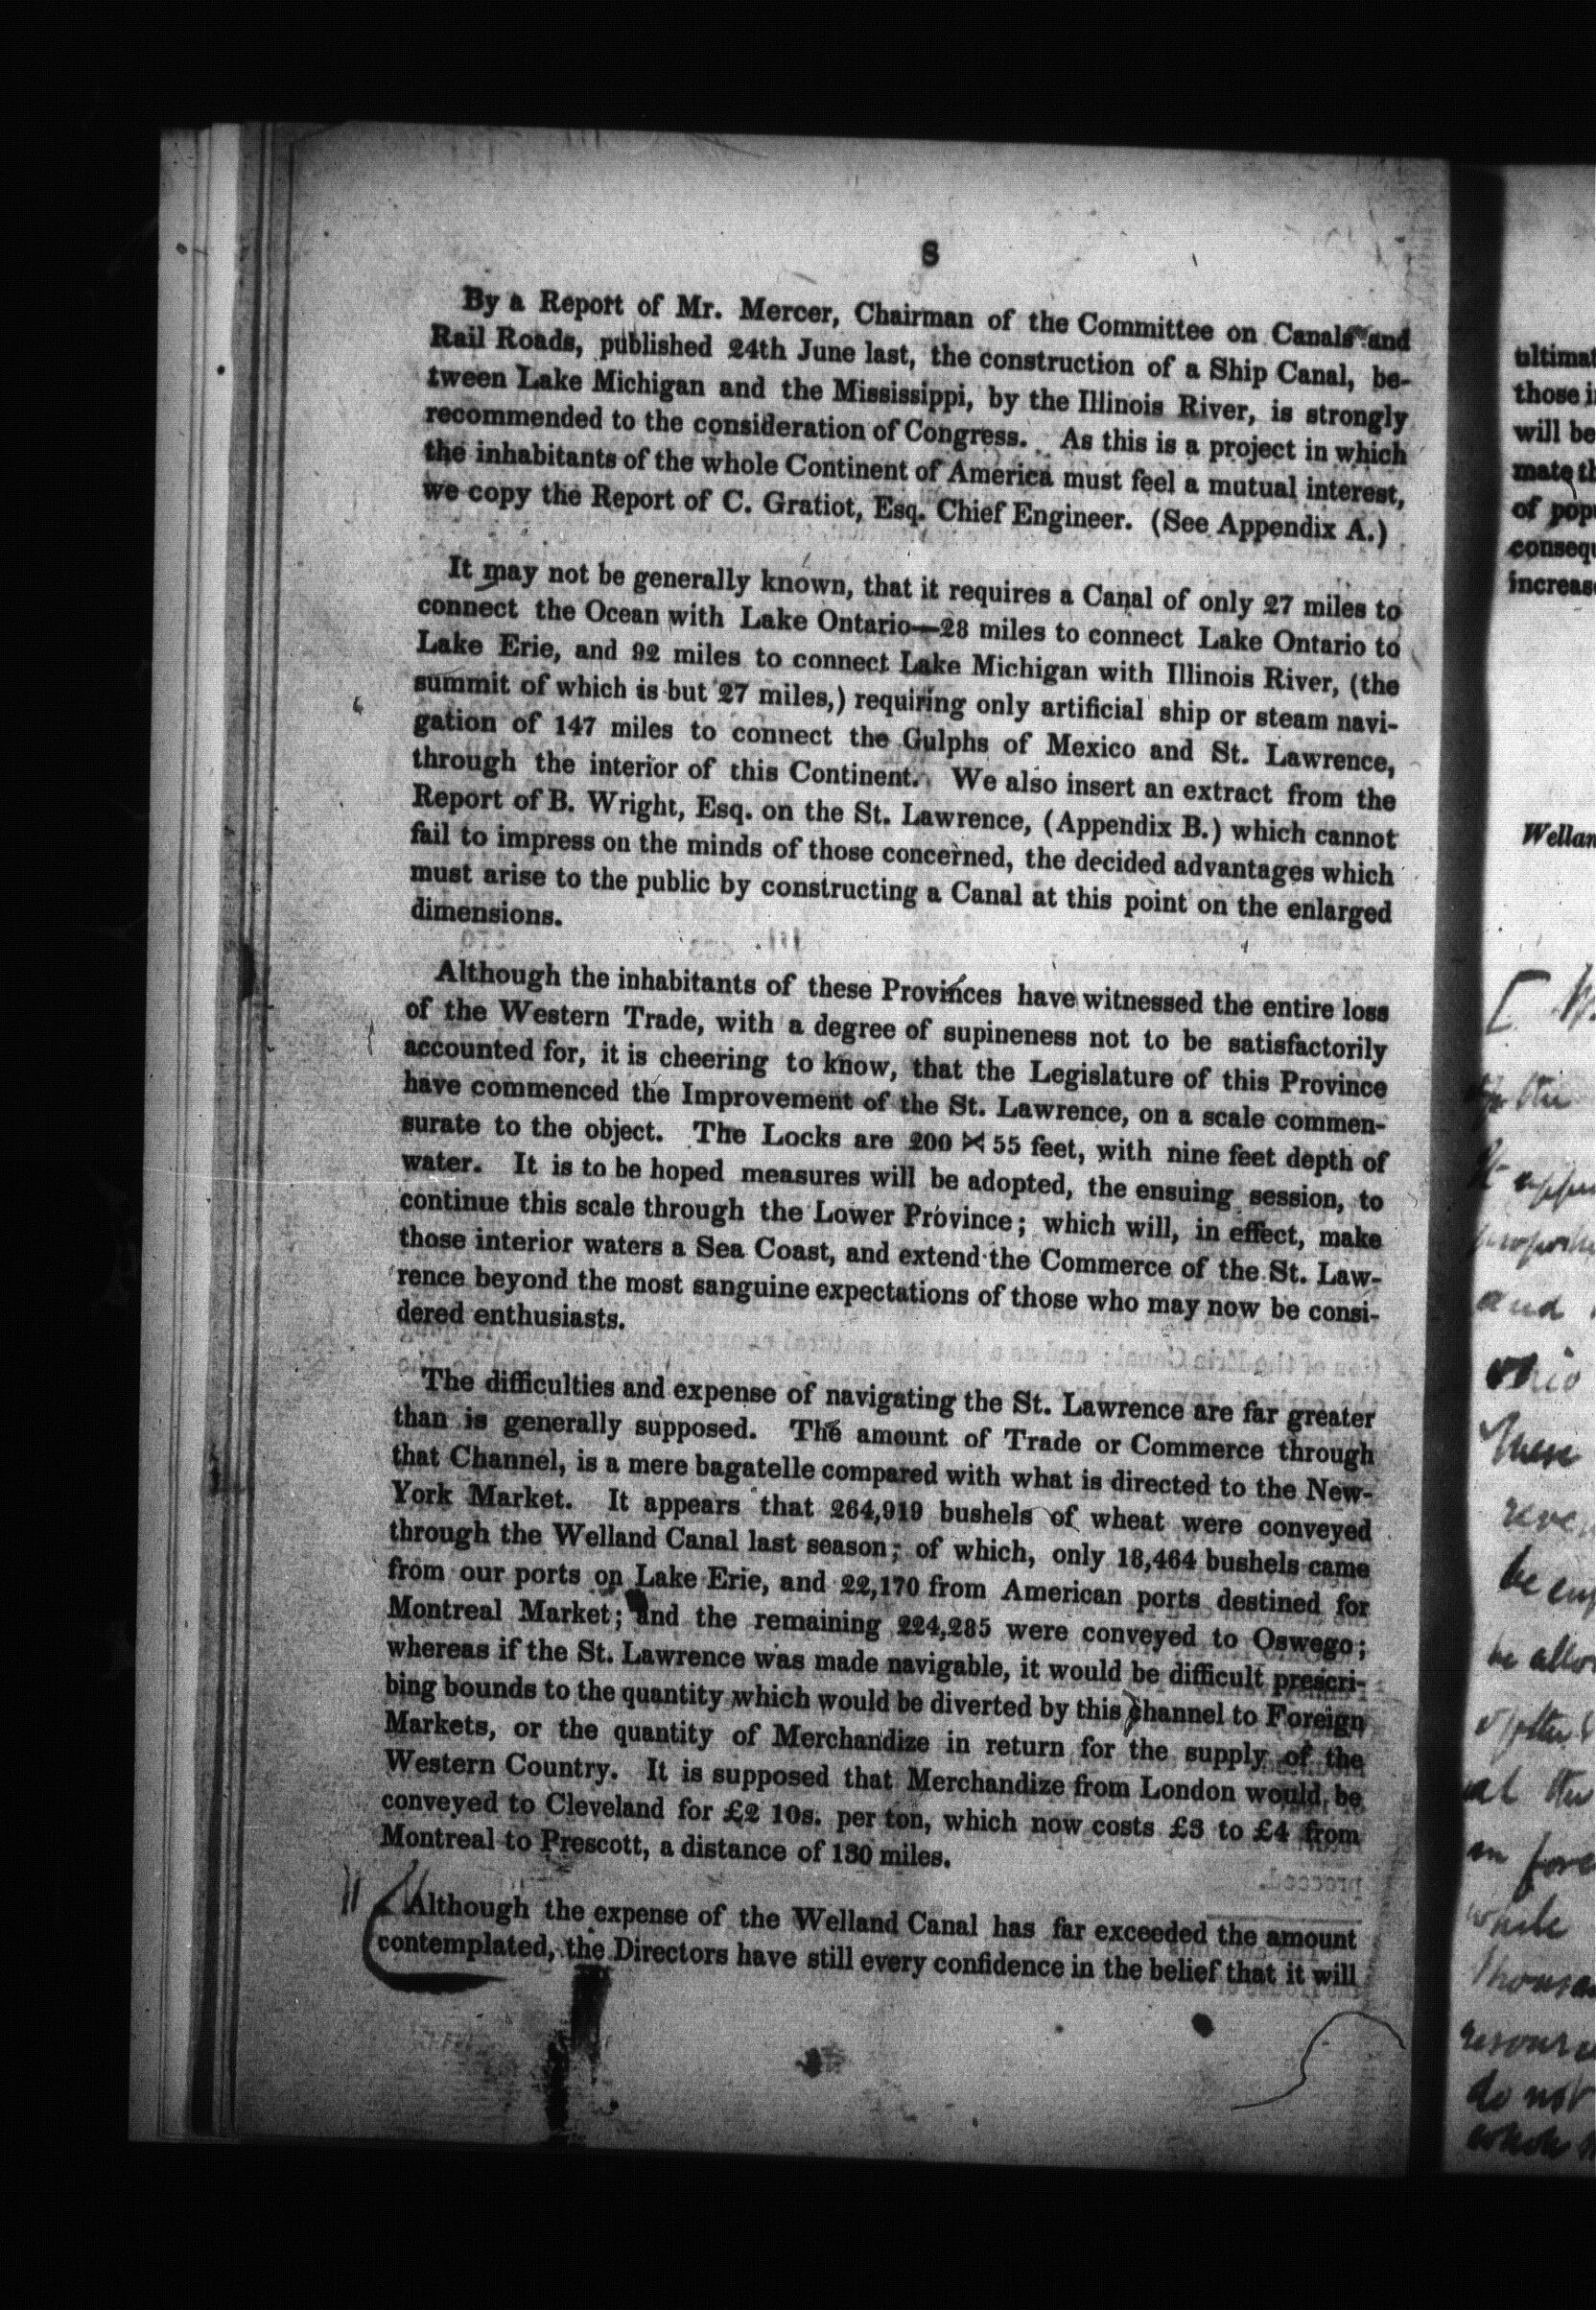 8
By a Report of Mr. Mercer, Chairman of the Committee on Canals and
Rail Roads, published 24th June last, the construction of a Ship Canal, be-
tween Lake Michigan and the Mississippi, by the Illinois River, is strongly
recommended to the consideration of Congress. As this is a project in which
the inhabitants of the whole Continent of America must feel a mutual interest,
we copy the Report of C. Gratiot, Esq. Chief Engineer. (See Appendix A.)
It may not be generally known, that it requires a Canal of only 27 miles to
connect the Ocean with Lake Ontario—28 miles to connect Lake Ontario to
Lake Erie, and 92 miles to connect Lake Michigan with Illinois River, (the
summit of which is but 27 miles,) requiring only artificial ship or steam navi-
gation of 147 miles to connect the Gulphs of Mexico and St. Lawrence,
through the interior of this Continent. We also insert an extract from the
Report of B. Wright, Esq. on the St. Lawrence, (Appendix B.) which cannot
fail to impress on the minds of those concerned, the decided advantages which
must arise to the public by constructing a Canal at this point on the enlarged
dimensions.
Although the inhabitants of these Provinces have witnessed the entire loss
of the Western Trade, with a degree of supineness not to be satisfactorily
accounted for, it is cheering to know, that the Legislature of this Province
have commenced the Improvement of the St. Lawrence, on a scale commen-
surate to the object. The Locks are 200 ⋈ 55 feet, with nine feet depth of
water. It is to be hoped measures will be adopted, the ensuing session, to
continue this scale through the Lower Province; which will, in effect, make
those interior waters a Sea Coast, and extend the Commerce of the St. Law-
rence beyond the most sanguine expectations of those who may now be consi-
dered enthusiasts.
The difficulties and expense of navigating the St. Lawrence are far greater
than is generally supposed. The amount of Trade or Commerce through
that Channel, is a mere bagatelle compared with what is directed to the New-
York Market. It appears that 264,919 bushels of wheat were conveyed
through the Welland Canal last season; of which, only 18,464 bushels came
from our ports on Lake Erie, and 22,170 from American ports destined for
Montreal Market; and the remaining 224,285 were conveyed to Oswego;
whereas if the St. Lawrence was made navigable, it would be difficult prescri-
bing bounds to the quantity which would be diverted by this channel to Foreign
Markets, or the quantity of Merchandize in return for the supply of the
Western Country. It is supposed that Merchandize from London would be
conveyed to Cleveland for £2 10s. per ton, which now costs £3 to £4 from
Montreal to Prescott, a distance of 130 miles.
Although the expense of the Welland Canal has far exceeded the amount
contemplated, the Directors have still every confidence in the belief that it will
ultima
those i
will be
mate th
of pop
consequ
increas
Wellan
the
and
These
be
be allo
at the
in fore
while
do not